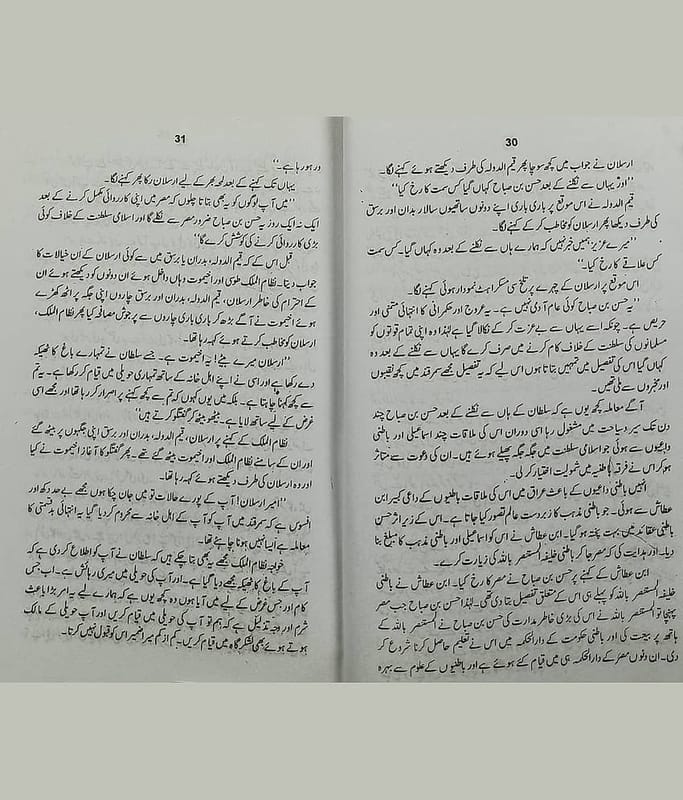 30
ارسلان نے جواب میں کچھ سوچا پھر قیم الدولہ کی طرف دیکھتے ہوئے کہنے لگا۔
’’اور یہاں سے نکلنے کے بعد حسن بن صباح کہاں گیا کس سمت کا رخ کیا‘‘
قیم الدولہ نے اس موقع پر باری باری اپنے دونوں ساتھیوں سالار بدان اور برسق
کی طرف دیکھا پھر ارسلان کو مخاطب کر کے کہنے لگا۔
’’میرے عزیز ہمیں خبر نہیں کہ ہمارے ہاں سے نکلنے کے بعد وہ کہاں گیا۔ کس سمت
کس علاقے کا رخ کیا۔‘‘
اس موقع پر ارسلان کے چہرے پر تلخ سی مسکراہٹ نمودار ہوئی کہنے لگا۔
’’یہ حسن بن صباح کوئی عام آدمی نہیں ہے۔ یہ عروج اور حکمرانی کا انتہائی متمنی اور
حریص ہے۔ چونکہ اسے یہاں سے بے عزت کر کے نکالا گیا ہے لہٰذا وہ اپنی تمام قوتوں کو
مسلمانوں کی سلطنت کے خلاف کام کرنے میں صرف کرے گا یہاں سے نکلنے کے بعد وہ
کہاں گیا اس کی تفصیل میں تمہیں بتاتا ہوں اس لیے کہ یہ تفصیل مجھے سمرقند میں کچھ نقیبوں
اور مخبروں سے ملی تھیں۔
آگے معاملہ کچھ یوں ہے کہ سلطان کے ہاں سے نکلنے کے بعد حسن بن صباح چند
دن تک سیر و سیاحت میں مشغول رہا اسی دوران اس کی ملاقات چند اسماعیلی اور باطنی
داعیوں سے ہوئی جو اسلامی سلطنت میں جگہ جگہ پھیلے ہوئے ہیں۔ ان کی دعوت سے متاثر
ہو کر اس نے فرقہ باطنیہ میں شمولیت اختیار کر لی۔
انہیں باطنی داعیوں کے باعث عراق میں اس کی ملاقات باطنیوں کے داعی کبیر ابن
عطاش سے ہوئی۔ جو باطنی مذہب کا زبردست عالم تصور کیا جاتا ہے۔ اس کے زیر اثر حسن
باطنی عقائد میں بہت پختہ ہو گیا۔ ابن عطاش نے اس کو اسماعیلی اور باطنی مذہب کا مبلغ بنا
دیا۔ اور ہدایت کی کہ مصر جا کر باطنی خلیفہ المستنصر باللہ کی زیارت کرے۔
ابن عطاش کے کہنے پر حسن بن صباح نے مصر کا رخ کیا۔ ابن عطاش نے باطنی
خلیفہ المستنصر باللہ کو پہلے ہی اس کے متعلق تفصیل بتا دی تھی۔ لہٰذا حسن بن صباح جب مصر
پہنچا تو المستنصر باللہ نے اس کی بڑی خاطر مدارت کی حسن بن صباح نے المستنصر باللہ کے
ہاتھ پر بیعت کی اور باطنی حکومت کے دارالحکمہ میں اس نے تعلیم حاصل کرنا شروع کر
دی۔ ان دنوں مصر کے دارالحکمہ ہی میں قیام کئے ہوئے ہے اور باطنیوں کے علوم سے بہرہ
31
ور ہو رہا ہے۔‘‘
یہاں تک کہنے کے بعد لمحہ بھر کے لیے ارسلان رکا پھر کہنے لگا۔
’’میں آپ لوگوں کو یہ بھی بتاتا چلوں کہ مصر میں اپنی کارروائی مکمل کرنے کے بعد
ایک نہ ایک روز یہ حسن بن صباح ضرور مصر سے نکلے گا اور اسلامی سلطنت کے خلاف کوئی
بڑی کارروائی کرنے کی کوشش کرے گا‘‘
قبل اس کے کہ قیم الدولہ، بدران یا برسق میں سے کوئی ارسلان کے ان خیالات کا
جواب دیتا۔ نظام الملک طوسی اور انحیموت وہاں داخل ہوئے ان دونوں کو دیکھتے ہوئے ان
کے احترام کی خاطر ارسلان، قیم الدولہ، بدران اور برسق چاروں اپنی جگہ پر اٹھ کھڑے
ہوئے انحیموت نے آگے بڑھ کر باری باری چاروں سے پرجوش مصافحہ کیا پھر نظام الملک،
ارسلان کو مخاطب کرتے ہوئے کہہ رہا تھا۔
’’ارسلان میرے بیٹے! یہ انحیموت ہے۔ جسے سلطان نے تمہارے باغ کا ٹھیکہ
دے رکھا ہے اور اسی نے اپنے اہل خانہ کے ساتھ تمہاری حویلی میں قیام کر رکھا ہے۔ یہ تم
سے کچھ کہنا چاہتا ہے۔ بلکہ میں یوں کہوں کہ تم سے کچھ کہنے پر اصرار کر رہا تھا اور مجھے اسی
غرض کے لیے ساتھ لایا ہے۔ بیٹھو بیٹھ کر گفتگو کرتے ہیں‘‘
نظام الملک کے کہنے پر ارسلان، قیم الدولہ، بدران اور برسق اپنی جگہوں پر بیٹھ گئے
اور ان کے سامنے نظام الملک اور انحیموت بیٹھ گئے تھے۔ پھر گفتگو کا آغاز انحیموت نے کیا
اور وہ ارسلان کی طرف دیکھتے ہوئے کہہ رہا تھا۔
’’امیر ارسلان! آپ کے پورے حالات تو میں جان چکا ہوں مجھے بے حد دکھ اور
افسوس ہے کہ سمرقند میں آپ کو آپ کے اہل خانہ سے محروم کر دیا گیا یہ انتہائی بدقسمتی کا
معاملہ ہے ایسا نہیں ہونا چاہئے تھا۔
خواجہ نظام الملک مجھے یہ بھی بتا چکے ہیں کہ سلطان نے آپ کو اطلاع کر دی ہے کہ
آپ کے باغ کا ٹھیکہ مجھے دیا گیا ہے۔ اور آپ کی حویلی میں میری رہائش ہے۔ اب جس
کام اور جس غرض کے لیے میں آیا ہوں وہ کچھ یوں ہے کہ ہمارے لیے یہ امر بڑا باعث
شرم اور وجہ تذلیل ہے کہ ہم تو آپ کی حویلی میں قیام کریں اور آپ حویلی کے مالک
ہوتے ہوئے بھی لشکر گاہ میں قیام کریں۔ کم از کم میرا ضمیر اس کو قبول نہیں کرتا۔